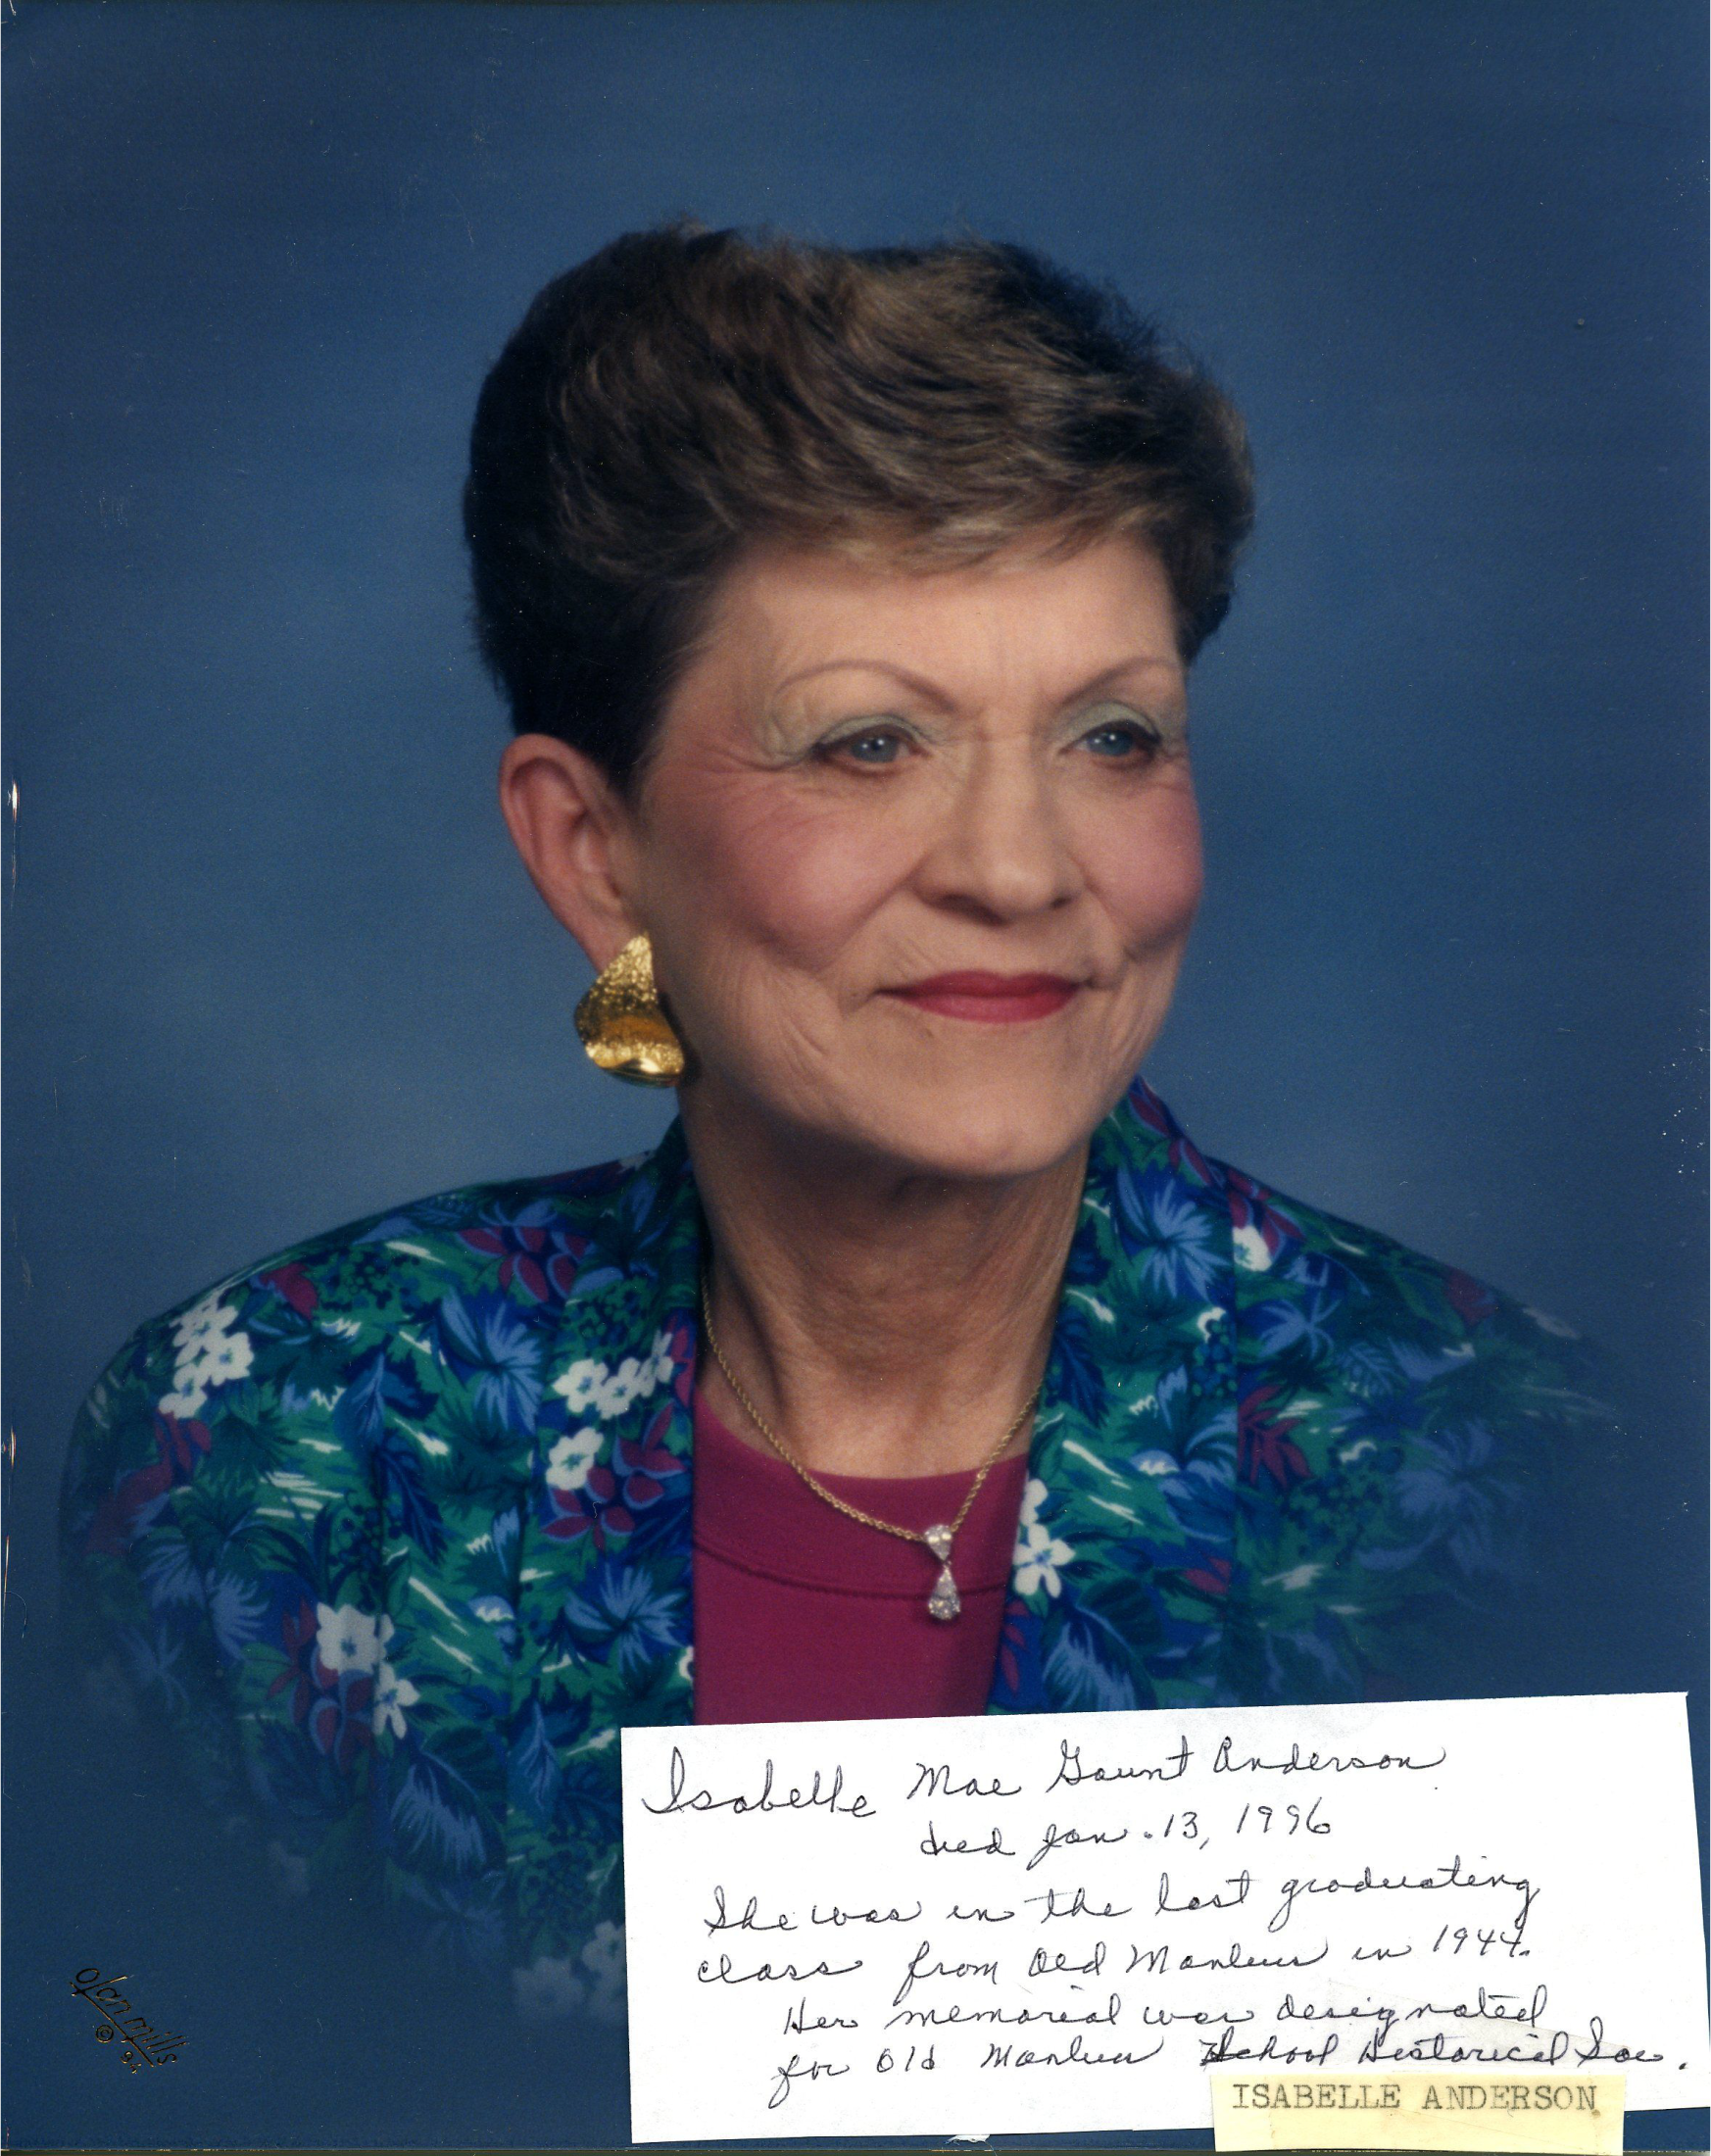 Isabelle Mae Gaunt Anderson
died Jan. 13, 1996
She was in the last graduating
class from Old Manlius in 1944.
Her memorial was designated
for Old Manlius School Historical Soc.
ISABELLE ANDERSON
Olan Mills
©